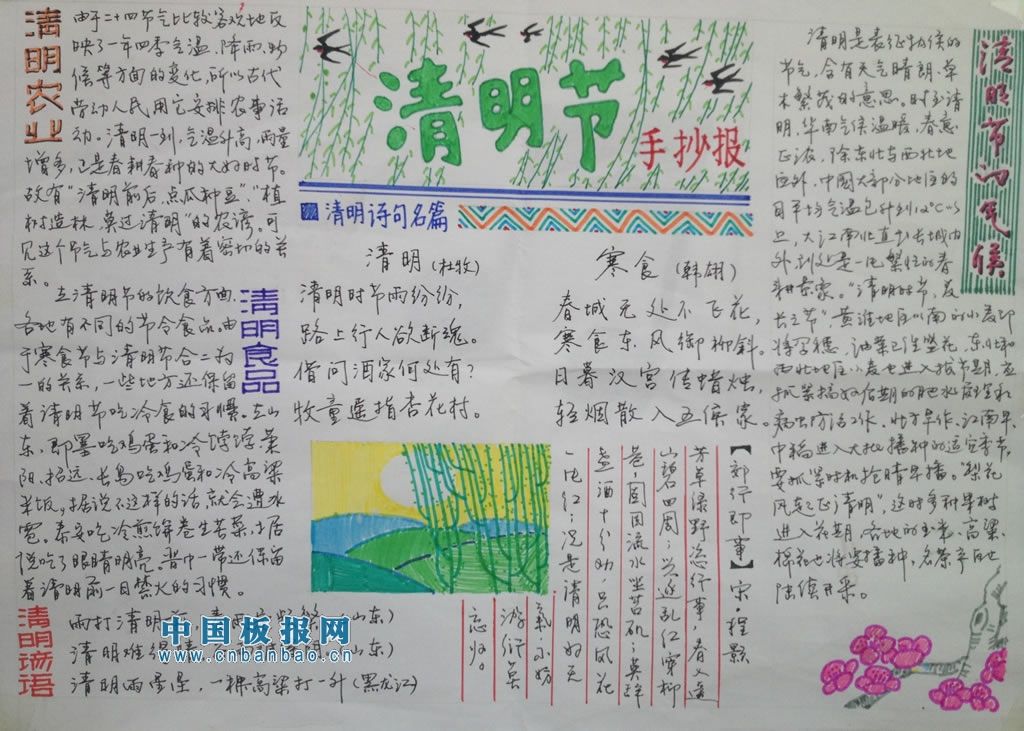 清明节
手抄报
清明农业
由于二十四节气比较客观地反
映了一年四季气温、降雨、物
候等方面的变化,所以古代
劳动人民用它安排农事活
动。清明一到,气温升高,雨量
增多,正是春耕春种的大好时节。
故有"清明前后,点瓜种豆"、"植
树造林,莫过清明"的农谚。可
见这个节气与农业生产有着密切的关
系。
清明食品
在清明节的饮食方面,
各地有不同的节令食品。由
于寒食节与清明节合二为
一的关系,一些地方还保留
着清明节吃冷食的习惯。在山
东,即墨吃鸡蛋和冷饽饽,莱
阳、招远、长岛吃鸡蛋和冷高粱
米饭,据说不这样的话,就会遭冰
雹。泰安吃冷煎饼卷生苦菜,
说吃了眼睛明亮。晋中一带还保留
着清明前一日禁火的习惯。
清明谚语
雨打清明前,(山东)
清明难得(山东)
清明雨星星,一棵高粱打一升(黑龙江)
清明诗句名篇
清明(杜牧)
清明时节雨纷纷,
路上行人欲断魂。
借问酒家何处有?
牧童遥指杏花村。
寒食(韩翃)
春城无处不飞花,
寒食东风御柳斜。
日暮汉宫传蜡烛,
轻烟散入五侯家。
【郊行即事】宋·程颢
芳草绿野恣行事,春入遥
山碧四周;兴逐乱红穿柳
巷,困临流水坐苔矶;莫辞
盏酒十分劝,只恐风花
一片红;况是清明好天
气,不妨
游衍莫
忘归。
清明节的气候
清明是表征物候的
节气,含有天气晴朗、草
木繁茂的意思。时至清
明,华南气候温暖,春意
正浓,除东北与西北地
区外,中国大部分地区的
日平均气温已升到12℃以
上,大江南北直至长城内
外,到处是一片繁忙的春
耕景象。"清明时节,麦
长三节",黄淮地区以南的小麦即
将孕穗,油菜已经盛花,东北和
西北地区小麦也进入拔节期,应
抓紧搞好后期的肥水管理和
病虫防治工作。北方旱作、江南早、
中稻进入大批播种的适宜季节,
要抓紧时机抢晴早播。"梨花
风起正清明",这时多种果树
进入花期,各地的玉米、高粱、
棉花也将要播种。名茶产区也
陆续开采。
中国板报网
www.cnbanbao.cn